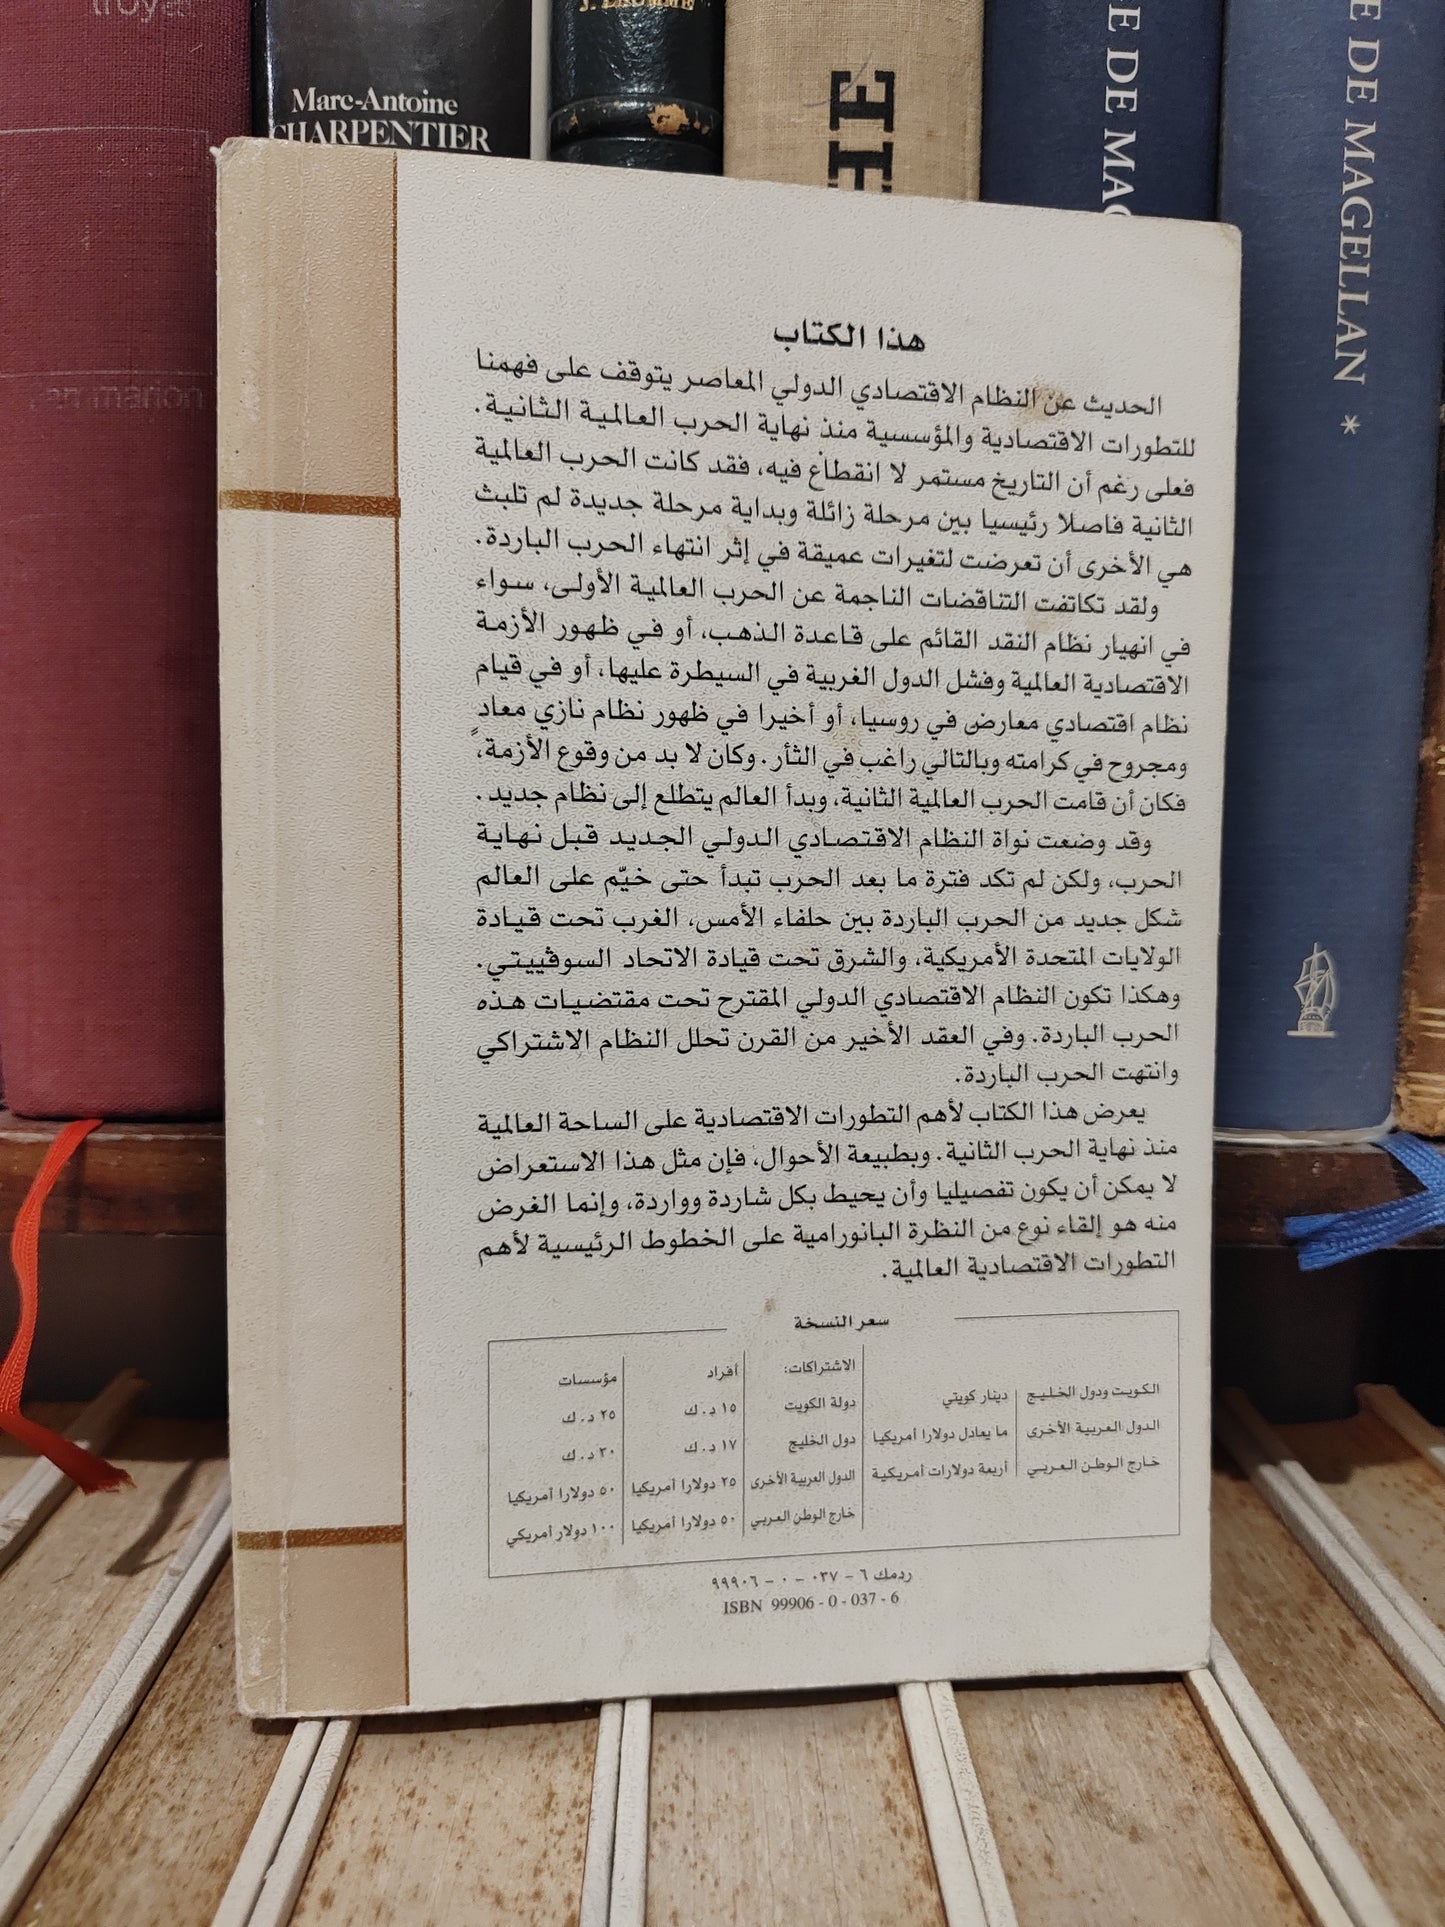 troy
Marc-Antoine
CHARPENTIER
HE
E DE MAG
E DE MAGELLAN *
هذا الكتاب
الحديث عن النظام الاقتصادي الدولي المعاصر يتوقف على فهمنا
للتطورات الاقتصادية والمؤسسية منذ نهاية الحرب العالمية الثانية.
فعلى رغم أن التاريخ مستمر لا انقطاع فيه، فقد كانت الحرب العالمية
الثانية فاصلا رئيسيا بين مرحلة زائلة وبداية مرحلة جديدة لم تلبث
هي الأخرى أن تعرضت لتغيرات عميقة في إثر انتهاء الحرب الباردة.
ولقد تكاتفت التناقضات الناجمة عن الحرب العالمية الأولى، سواء
في انهيار نظام النقد القائم على قاعدة الذهب، أو في ظهور الأزمة
الاقتصادية العالمية وفشل الدول الغربية في السيطرة عليها، أو في قيام
نظام اقتصادي معارض في روسيا، أو أخيرا في ظهور نظام نازي معادٍ
ومجروح في كرامته وبالتالي راغب في الثأر. وكان لا بد من وقوع الأزمة،
فكان أن قامت الحرب العالمية الثانية، وبدأ العالم يتطلع إلى نظام جديد.
وقد وضعت نواة النظام الاقتصادي الدولي الجديد قبل نهاية
الحرب، ولكن لم تكد فترة ما بعد الحرب تبدأ حتى خيّم على العالم
شكل جديد من الحرب الباردة بين حلفاء الأمس، الغرب تحت قيادة
الولايات المتحدة الأمريكية، والشرق تحت قيادة الاتحاد السوڤييتي.
وهكذا تكون النظام الاقتصادي الدولي المقترح تحت مقتضيات هذه
الحرب الباردة. وفي العقد الأخير من القرن تحلل النظام الاشتراكي
وانتهت الحرب الباردة.
يعرض هذا الكتاب لأهم التطورات الاقتصادية على الساحة العالمية
منذ نهاية الحرب الثانية. وبطبيعة الأحوال، فإن مثل هذا الاستعراض
لا يمكن أن يكون تفصيليا وأن يحيط بكل شاردة وواردة، وإنما الغرض
منه هو إلقاء نوع من النظرة البانورامية على الخطوط الرئيسية لأهم
التطورات الاقتصادية العالمية.
سعر النسخة
الكويت ودول الخليج دينار كويتي
الدول العربية الأخرى ما يعادل دولارا أمريكيا
خارج الوطن العربي أربعة دولارات أمريكية
الاشتراكات: أفراد مؤسسات
دولة الكويت ١٥ د.ك ٢٥ د.ك
دول الخليج ١٧ د.ك ٣٠ د.ك
الدول العربية الأخرى ٢٥ دولارا أمريكيا ٥٠ دولارا أمريكيا
خارج الوطن العربي ٥٠ دولارا أمريكيا ١٠٠ دولار أمريكي
ردمك ٦ - ٠٣٧ - ٠ - ٩٩٩٠٦
ISBN 99906 - 0 - 037 - 6